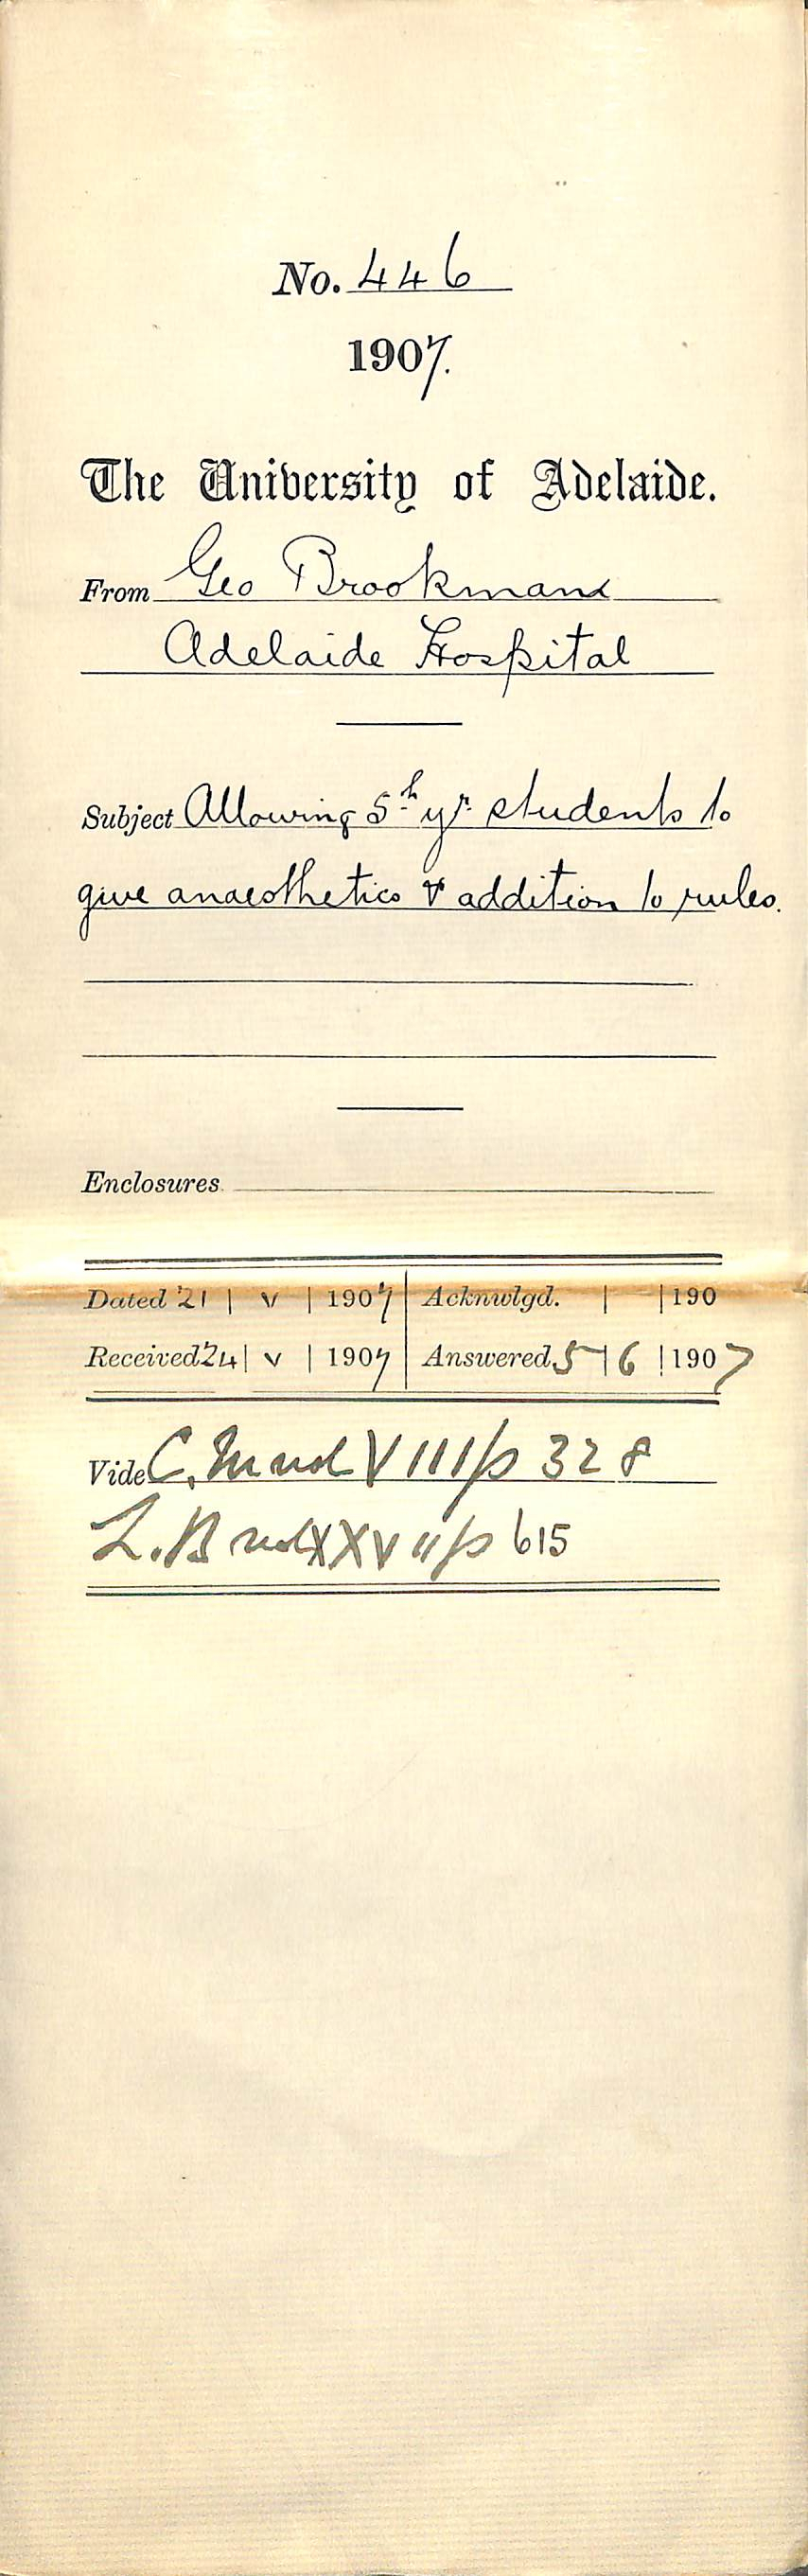 No. 446
1907.
The University of Adelaide.
From Geo Brookman
Adelaide Hospital
Subject Allowing 5th yr. students to
give anaesthetics & addition to rules.
Enclosures
Dated 21 | V | 1907 | Acknwlgd. | | 190
Received 24 | V | 1907 | Answered 5 | 6 | 1907
Vide C. M vol VIII/p 328
L.B vol XXVII/p 615